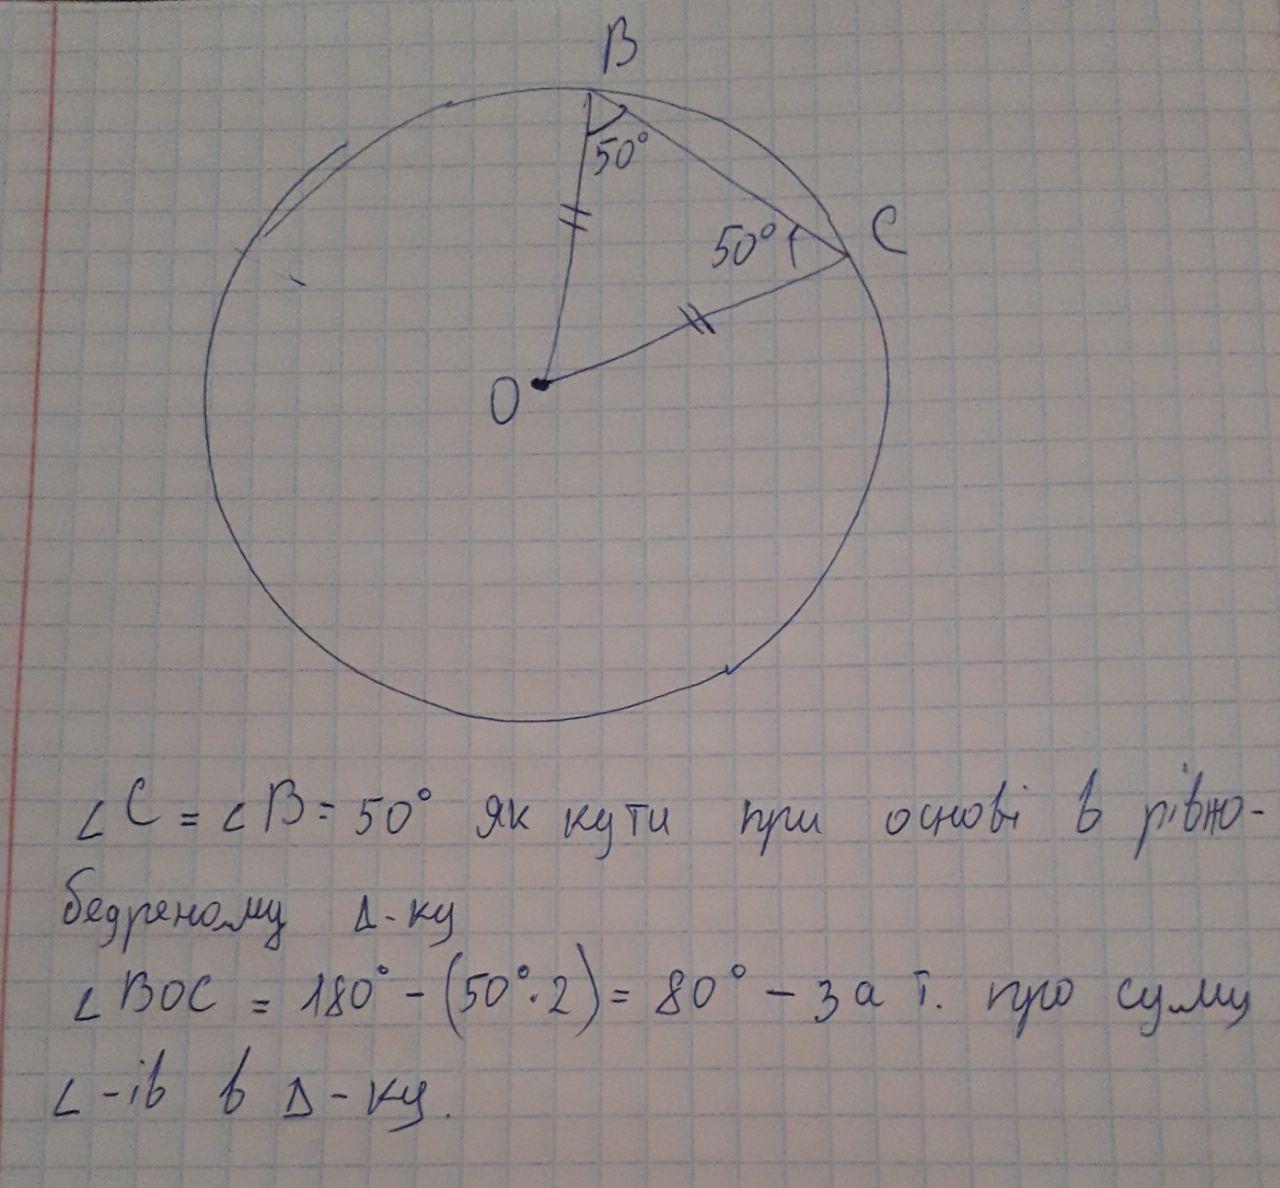 B
50°
50°
C
O
∠C = ∠B = 50° як кути при основі в рівно-
бедреному Δ-ку
∠BOC = 180° - (50°·2) = 80° - за т. про суму
∠-ів в Δ-ку.